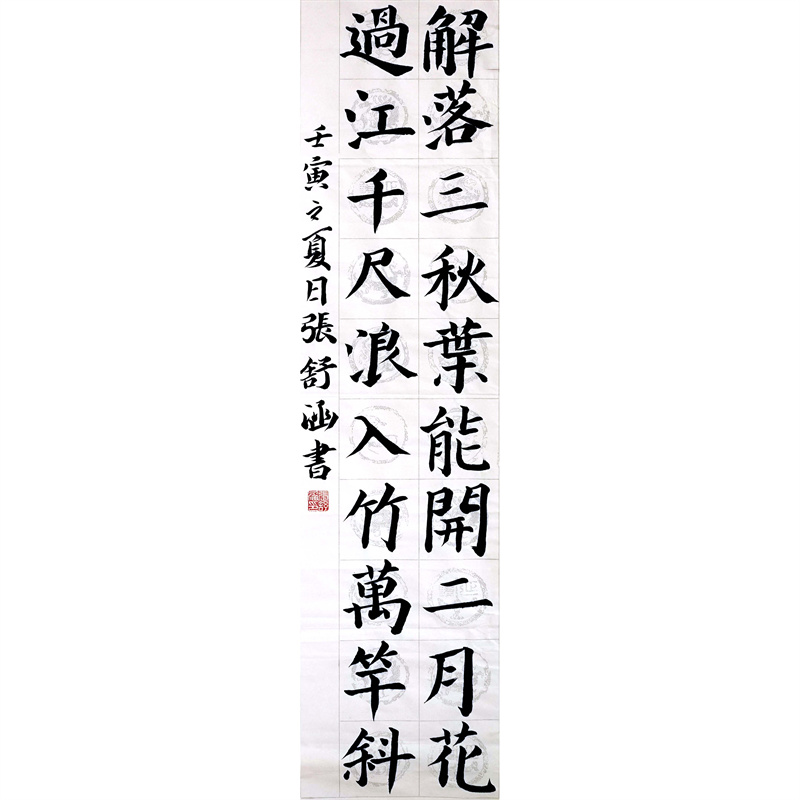 解落三秋葉能開二月花
過江千尺浪入竹萬竿斜
壬寅之夏日張舒涵書